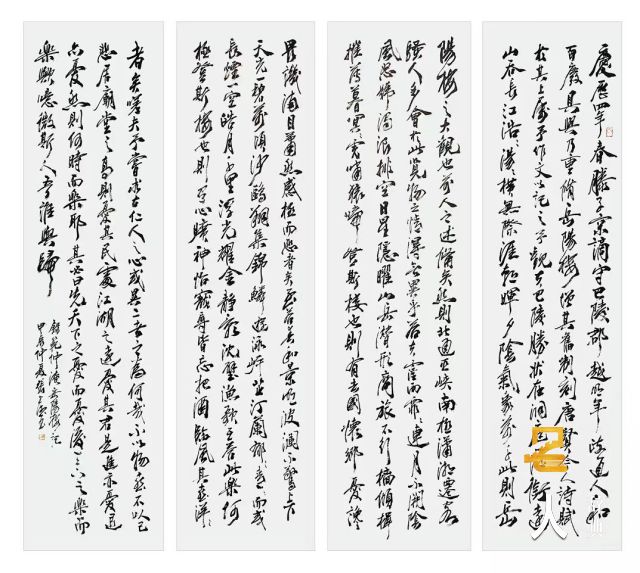 慶曆四年春滕子京謫守巴陵郡越明年政通人和
百廢具興乃重脩岳陽樓增其舊制刻唐賢今人詩賦
於其上屬予作文以記之予觀夫巴陵勝狀在洞庭一湖銜遠
山吞長江浩浩湯湯橫無際涯朝暉夕陰氣象萬千此則岳
陽樓之大觀也前人之述備矣然則北通巫峽南極瀟湘遷客
騷人多會於此覽物之情得無異乎若夫霪雨霏霏連月不開陰
風怒號濁浪排空日星隱曜山岳潛形商旅不行檣傾楫
摧薄暮冥冥虎嘯猿啼登斯樓也則有去國懷鄉憂讒
畏譏滿目蕭然感極而悲者矣至若春和景明波瀾不驚上下
天光一碧萬頃沙鷗翔集錦鱗游泳岸芷汀蘭郁郁青青而或
長煙一空皓月千里浮光耀金靜影沈璧漁歌互答此樂何
極登斯樓也則有心曠神怡寵辱皆忘把酒臨風其喜洋洋
者矣嗟夫予嘗求古仁人之心或異二者之為何哉不以物喜不以己
悲居廟堂之高則憂其民處江湖之遠憂其君是進亦憂退
亦憂然則何時而樂耶其必曰先天下之憂而憂後天下之樂而
樂歟噫微斯人吾誰與歸
錄范仲淹岳陽樓記
甲辰仲夏